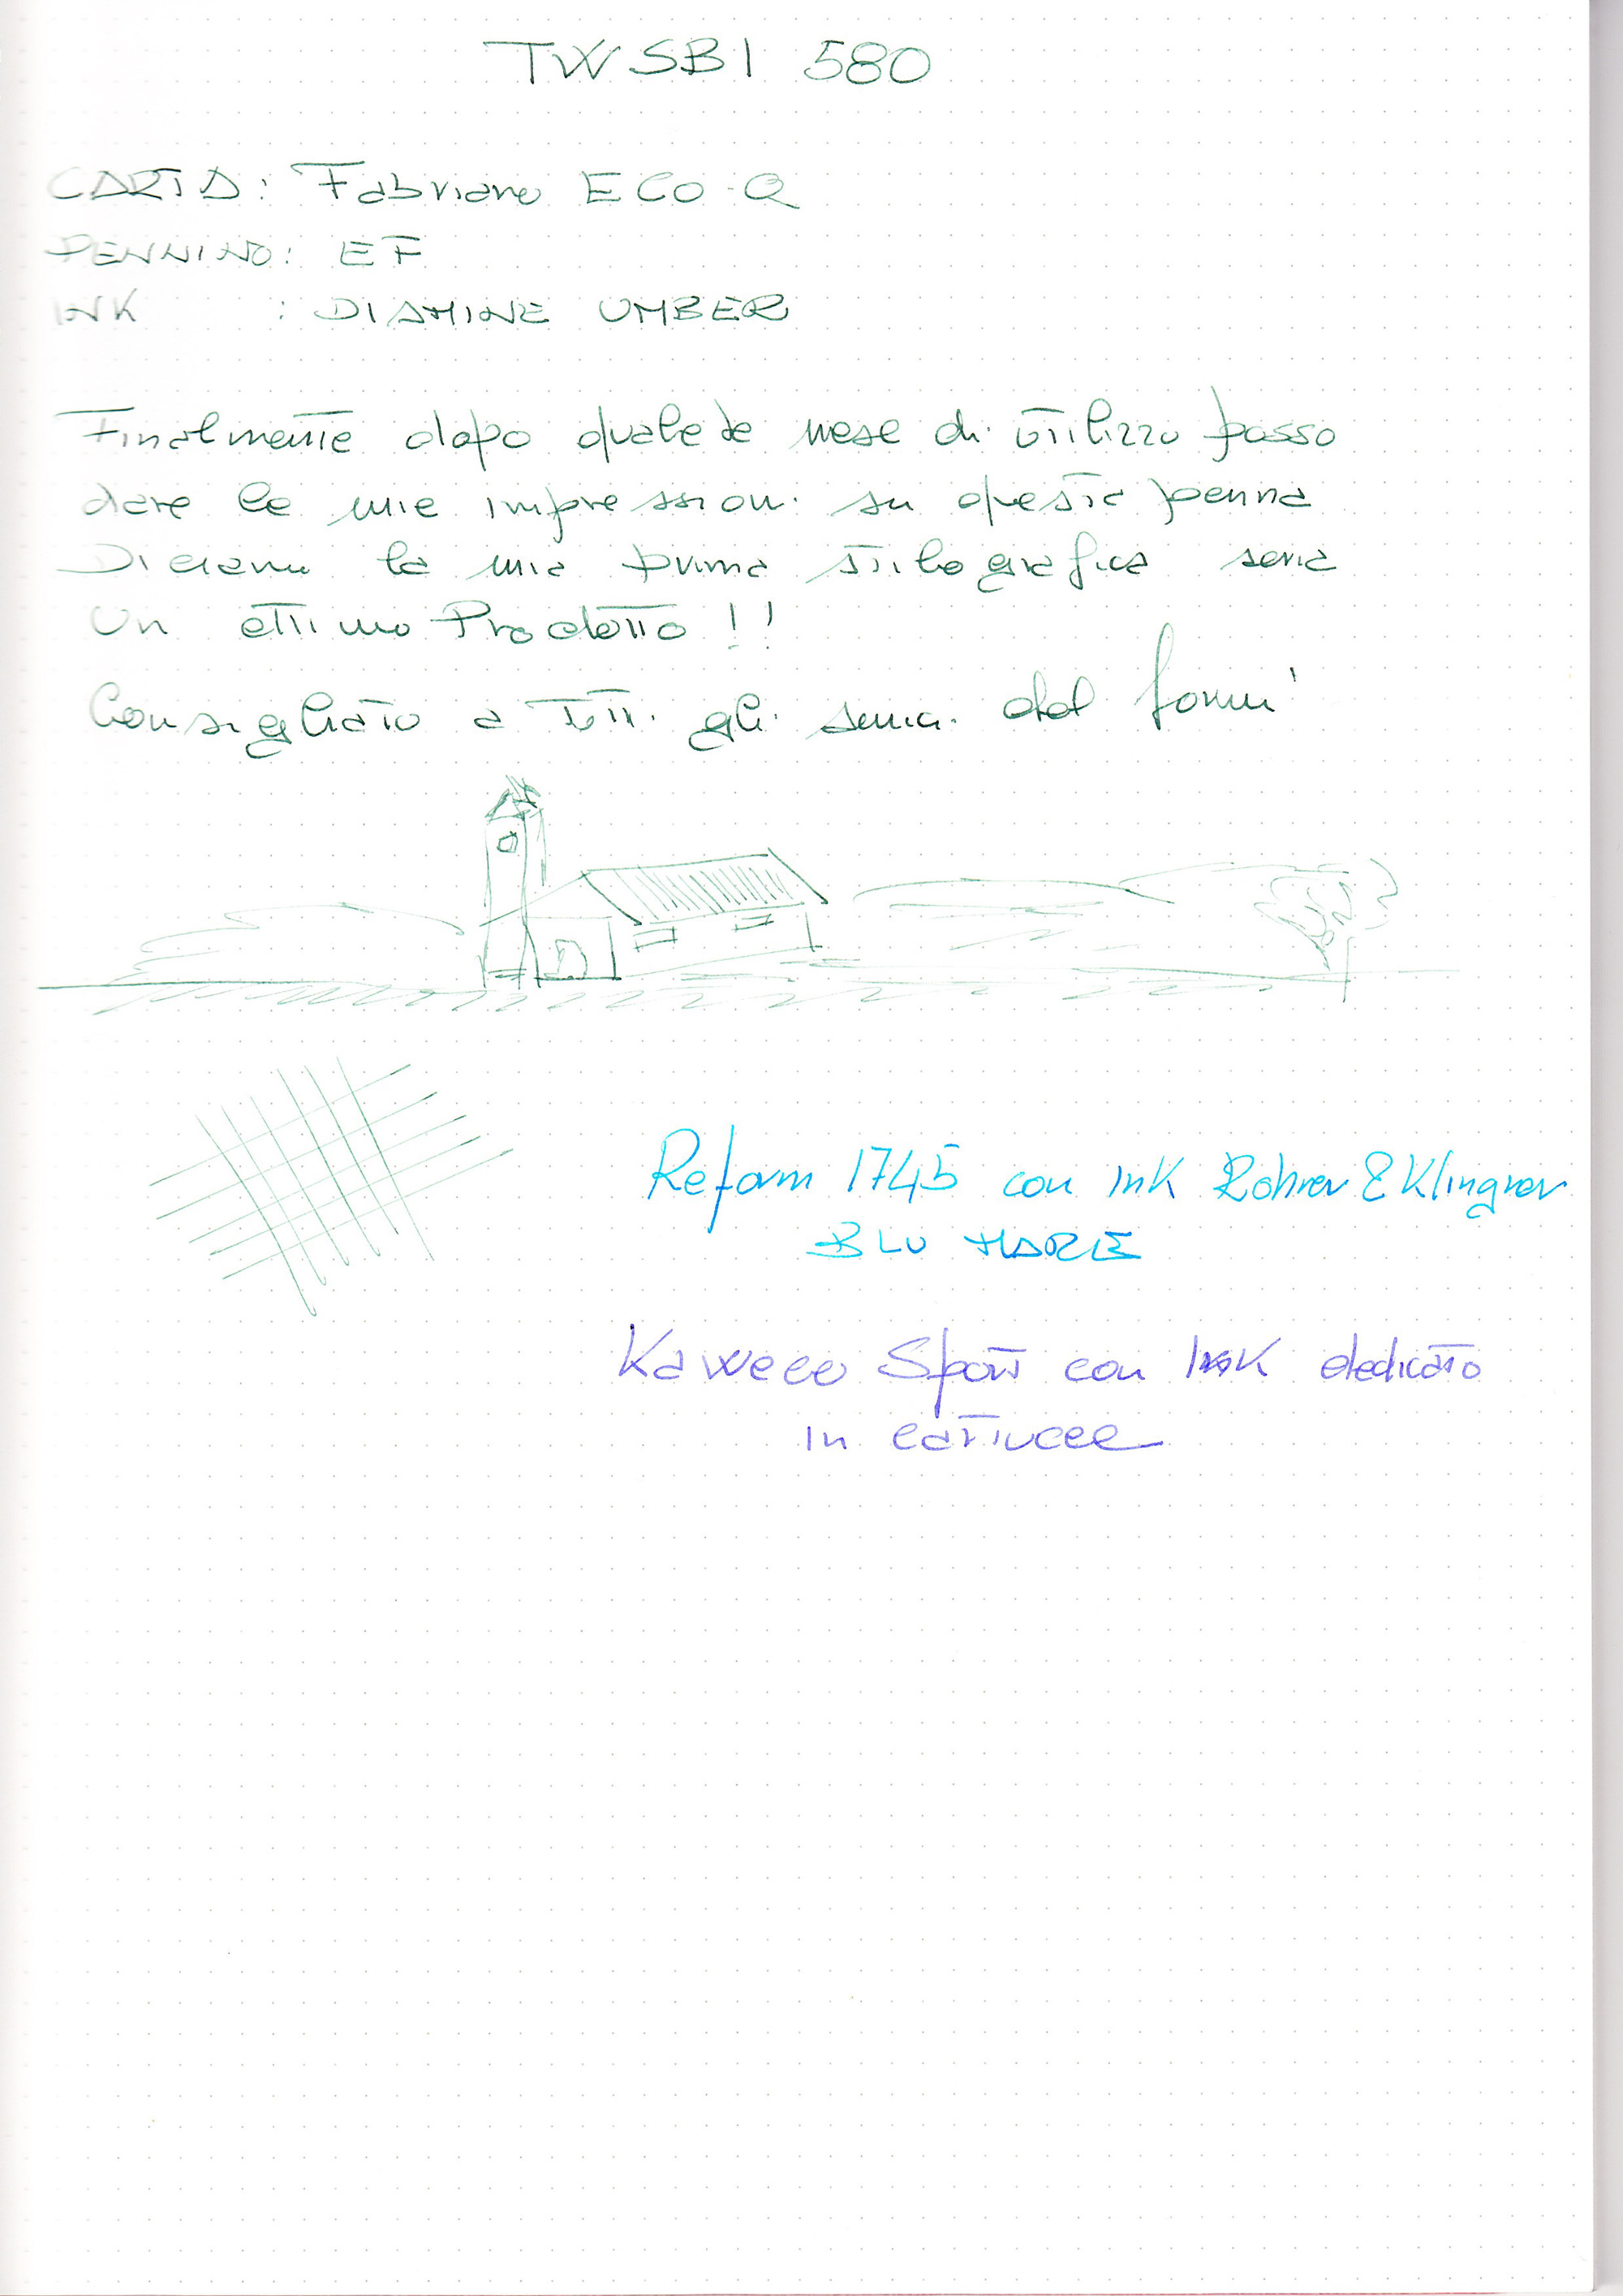 TWSBI 580
CARTA: Fabriano ECO-Q
PENNINO: EF
INK : DIAMINE UMBER
Finalmente dopo qualche mese di utilizzo posso
dare le mie impressioni su questa penna
Diciamo la mia prima stilografica seria
Un ottimo Prodotto !!
Consigliato a tutti gli amici del forum
Reform 1745 con ink Rohrer & Klingner
BLU MARE
Kaweco Sport con INK dedicato
in cartucce